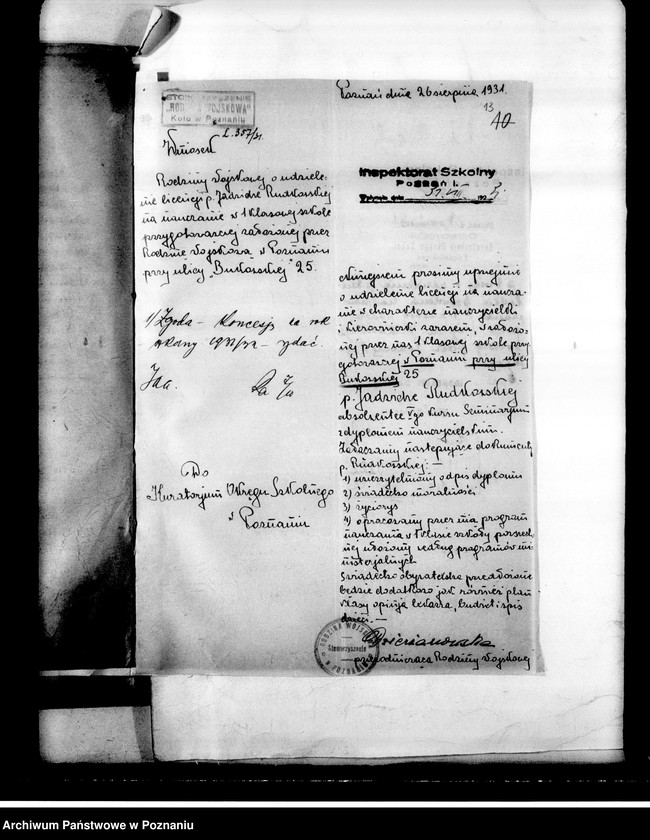 Poznań dnia 26 sierpnia 1931.
13
40
STOWARZYSZENIE
"RODZINA WOJSKOWA"
Koło w Poznaniu
L. 357/31.
Wniosek
Rodziny Wojskowej o udziele-
nie licencji p. Jadwidze Rudkowskiej
na nauczanie w 1 klasowej szkole
przygotowawczej założonej przez
Rodzinę Wojskową w Poznaniu
przy ulicy "Bukowskiej" 25.
1) Zgoda – Koncesję na rok
szkolny 1931/32 – wydać.
Do
Kuratorjum Okręgu Szkolnego
w Poznaniu
Inspektorat Szkolny
Poznań I.
Niniejszem prosimy uprzejmie
o udzielenie licencji na naucza-
nie w charakterze nauczycielki
i kierowniczki zarazem, w założo-
nej przez nas 1 klasowej szkole przy-
gotowawczej w Poznaniu przy ulicy
Bukowskiej 25
p. Jadwidze Rudkowskiej
absolwentce V-go kursu Seminarjum
z dyplomem nauczycielskim.
Załączamy następujące dokumenty
p. Rudkowskiej: —
1) uwierzytelniony odpis dyplomu
2) świadectwo moralności
3) życiorys
4) opracowany przez nią program
nauczania w 1 klasie szkoły powszech-
nej ułożony według programów mi-
nisterjalnych
Świadectwo obywatelstwa przedłożone
będzie dodatkowo jak również plan
klasy opinja lekarza, budżet i spis
dzieci. —
RODZINA WOJSKOWA
Stowarzyszenie
przewodnicząca Rodziny Wojskowej
Archiwum Państwowe w Poznaniu